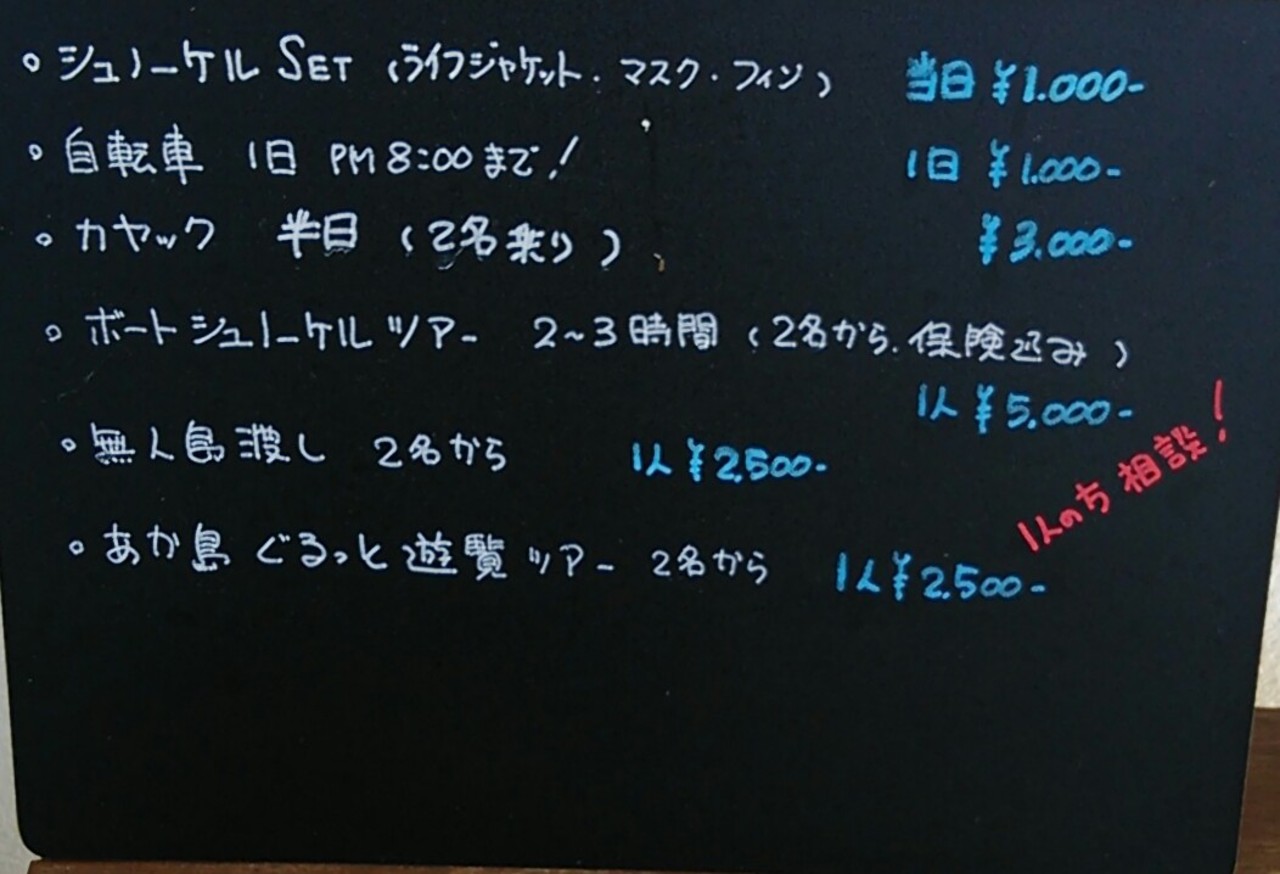 。シュノーケル SET (ライフジャケット・マスク・フィン) 当日 ¥1.000-
。自転車 1日 PM8:00まで! 1日 ¥1.000-
。カヤック 半日 (2名乗り) ¥3.000-
。ボートシュノーケルツアー 2~3時間 (2名から.保険込み)
1人 ¥5.000-
。無人島渡し 2名から 1人 ¥2.500-
1人のち相談!
。あか島 ぐるっと遊覧ツアー 2名から 1人 ¥2.500-